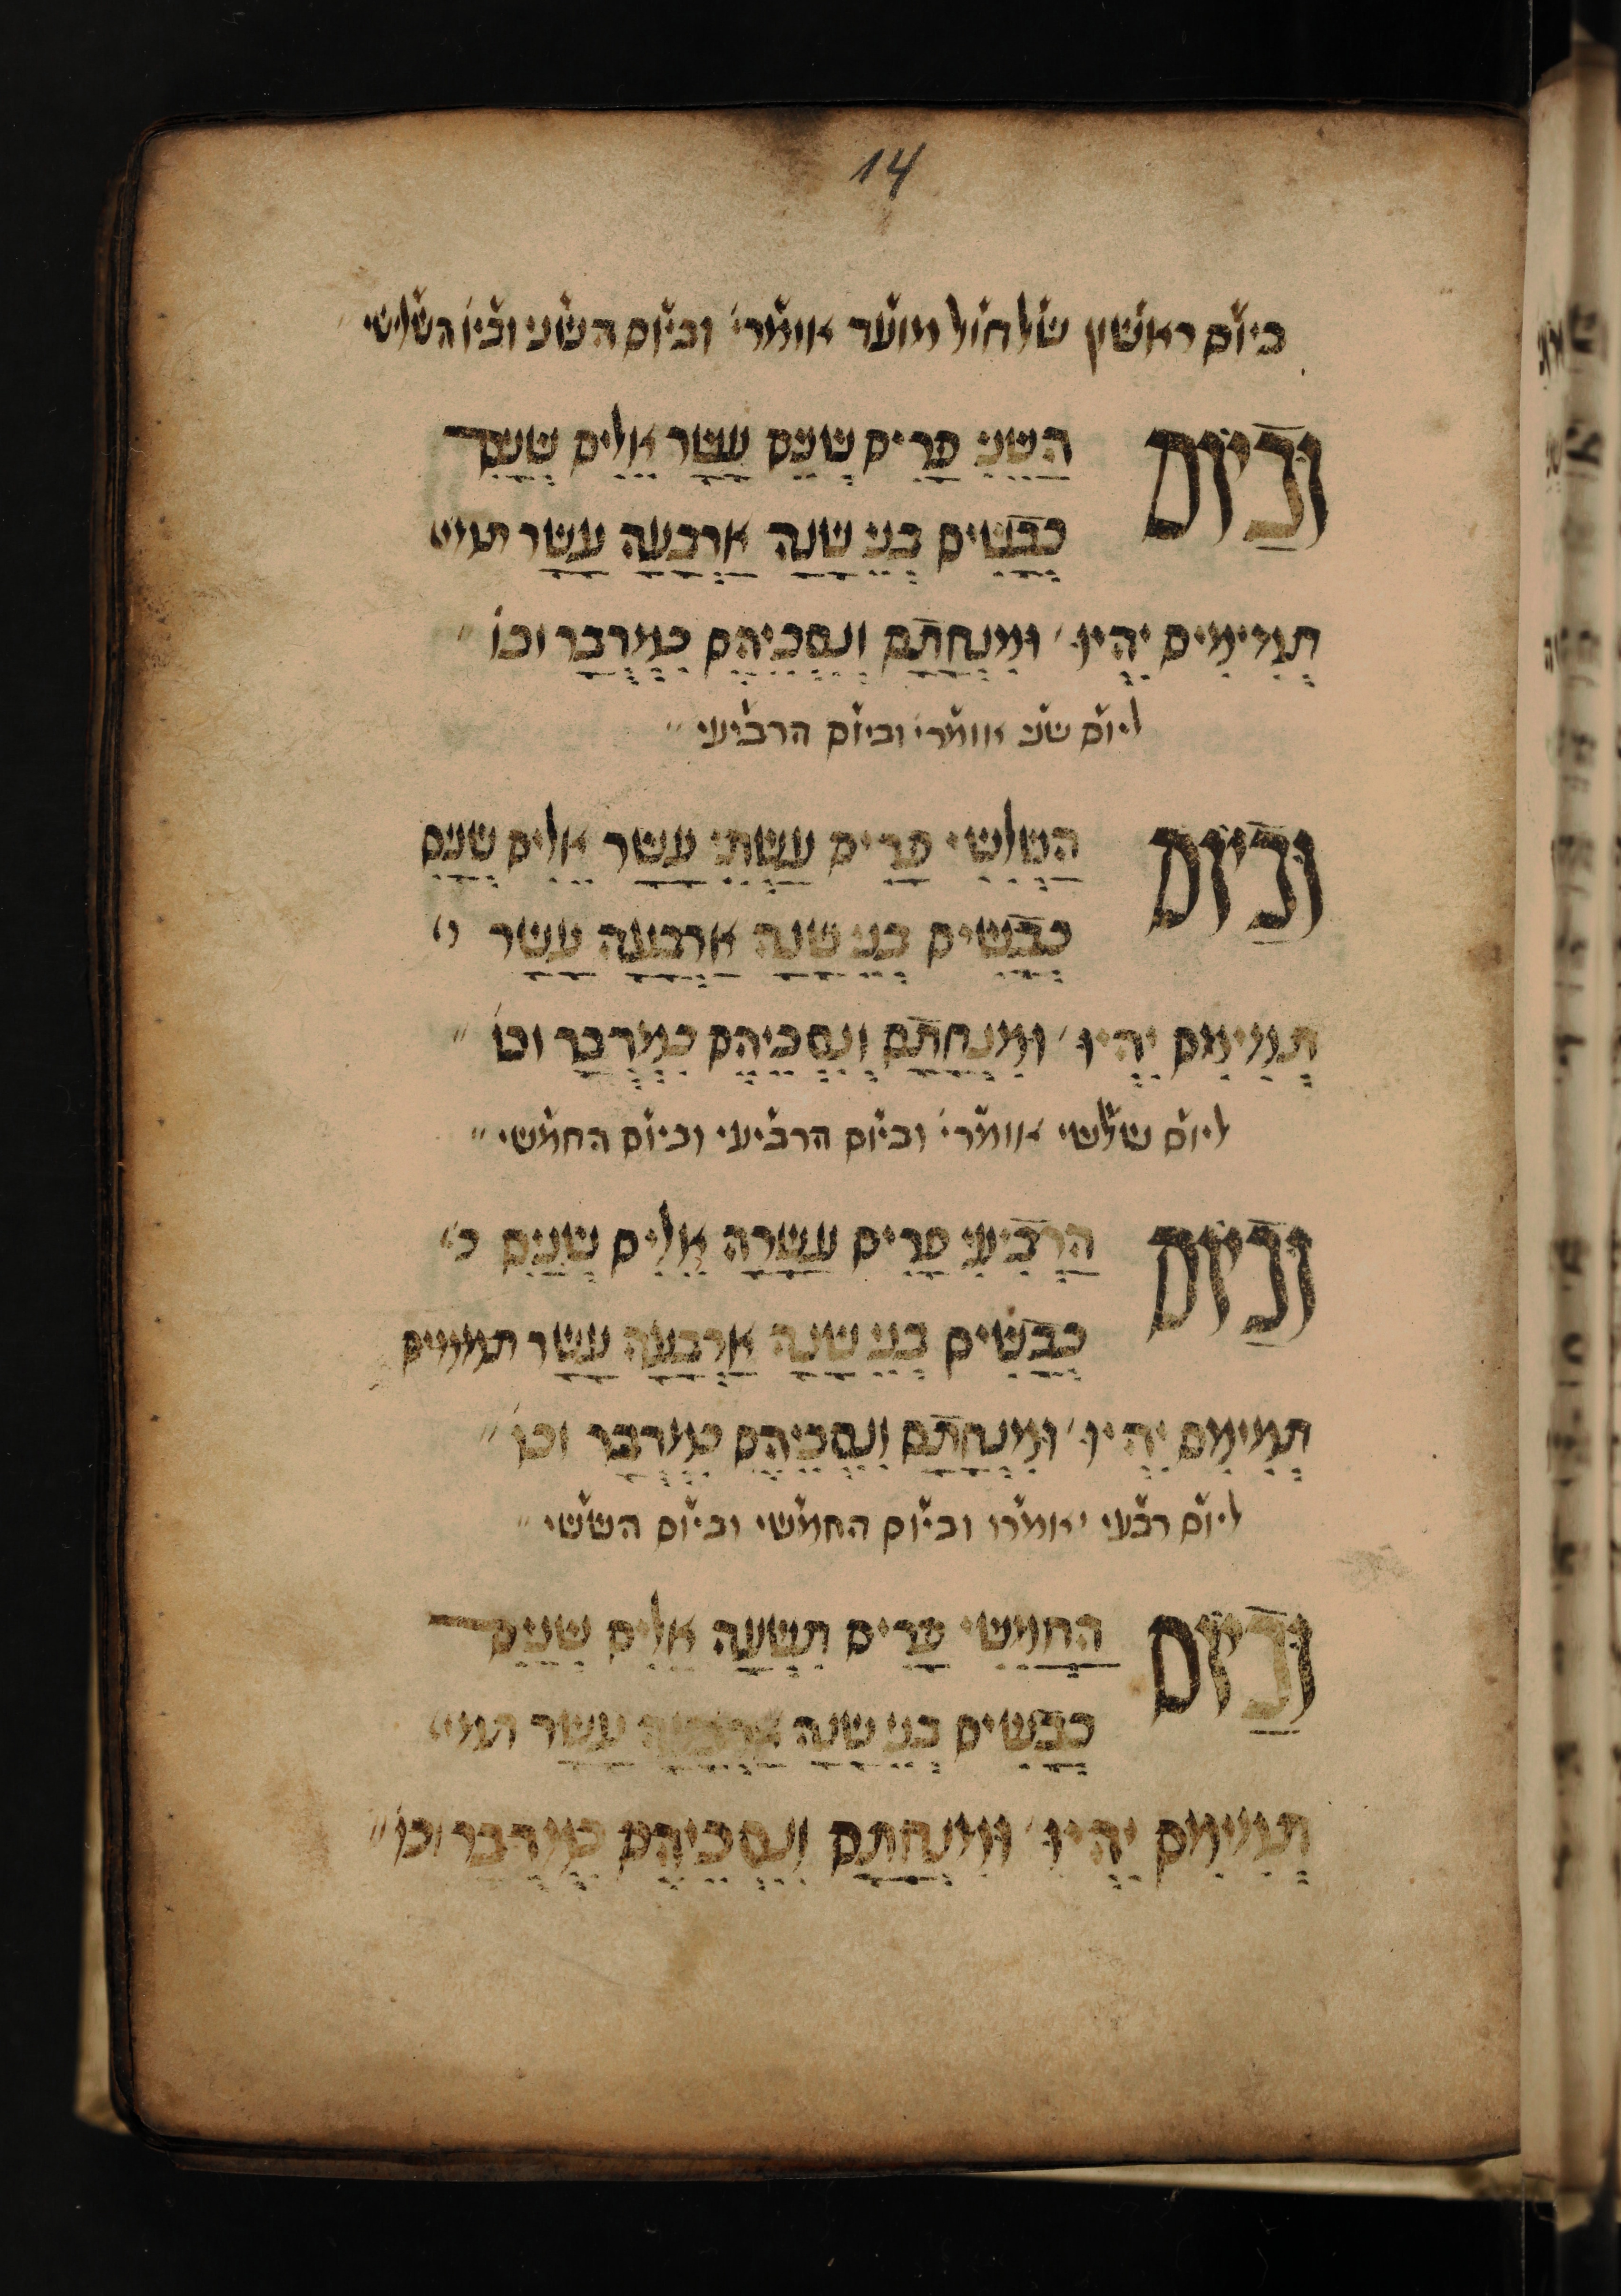 14
ביום ראשון של חול מועד אומרי׳ וביום השני וביו׳ השלישי
וביום השני פרים שנים עשר אילים שנים
כבשים בני שנה ארבעה עשר תמי׳
תמימים יהיו׳ ומנחתם ונסכיהם כמדבר וכו׳
ליום שני אומרי׳ וביום הרביעי
וביום השלשי פרים עשתי עשר אלים שנים
כבשים בני שנה ארבעה עשר
תמימם יהיו׳ ומנחתם ונסכיהם כמדבר וכו׳
ליום שלשי אומרי׳ וביום הרביעי וביום החמשי
וביום הרביעי פרים עשרה אלים שנים כ׳
כבשים בני שנה ארבעה עשר תמימים
תמימם יהיו׳ ומנחתם ונסכיהם כמדבר וכו׳
ליום רבעי אומרי׳ וביום החמשי וביום הששי
וביום החמישי פרים תשעה אלים שנים
כבשים בני שנה ארבעה עשר תמי׳
תמימם יהיו׳ ומנחתם ונסכיהם כמדבר וכו׳